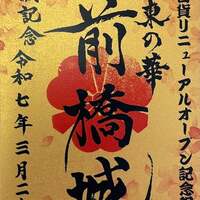 貨リニューアルオープン記念
東の華
前橋城
記念令和七年三月二